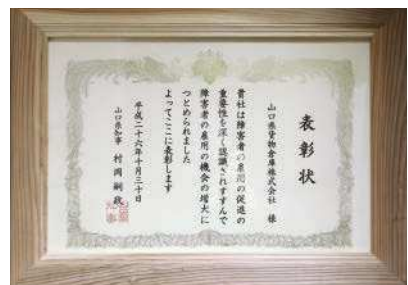 表彰状
山口県貨物倉庫株式会社 様
貴社は障害者の雇用の促進の
重要性を深く認識されすすんで
障害者の雇用の機会の増大に
つとめられました
よってここに表彰します
平成二十六年十月三十日
山口県知事 村岡嗣政